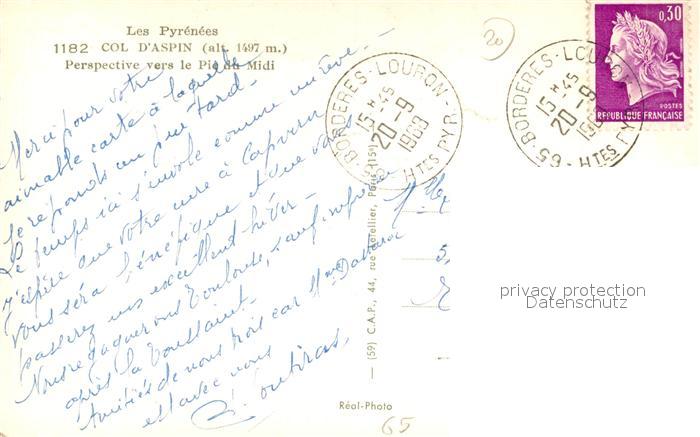 Les Pyrénées
1182 COL D'ASPIN (alt. 1497 m.)
Perspective vers le Pic du Midi
Merci pour votre
aimable carte à laquelle
je réponds un peu tard.
Le temps ici s'envole comme un rêve
j'espère que votre cure à Capvern
vous sera bénéfique et que vous
passerez un excellent hiver
Nous regagnerons Toulouse, sauf
après la Toussaint.
Amitiés de nous trois car Mme
est avec nous
20
BORDERES-LOURON
15H45
20-9
HTES PYR.
65 - BORDERES-LOURON
15H45
20-9
HTES PYR.
0,30
POSTES
REPUBLIQUE FRANÇAISE
(59) C.A.P., 44, rue Letellier, Paris (15e)
Réal-Photo
65
privacy protection
Datenschutz